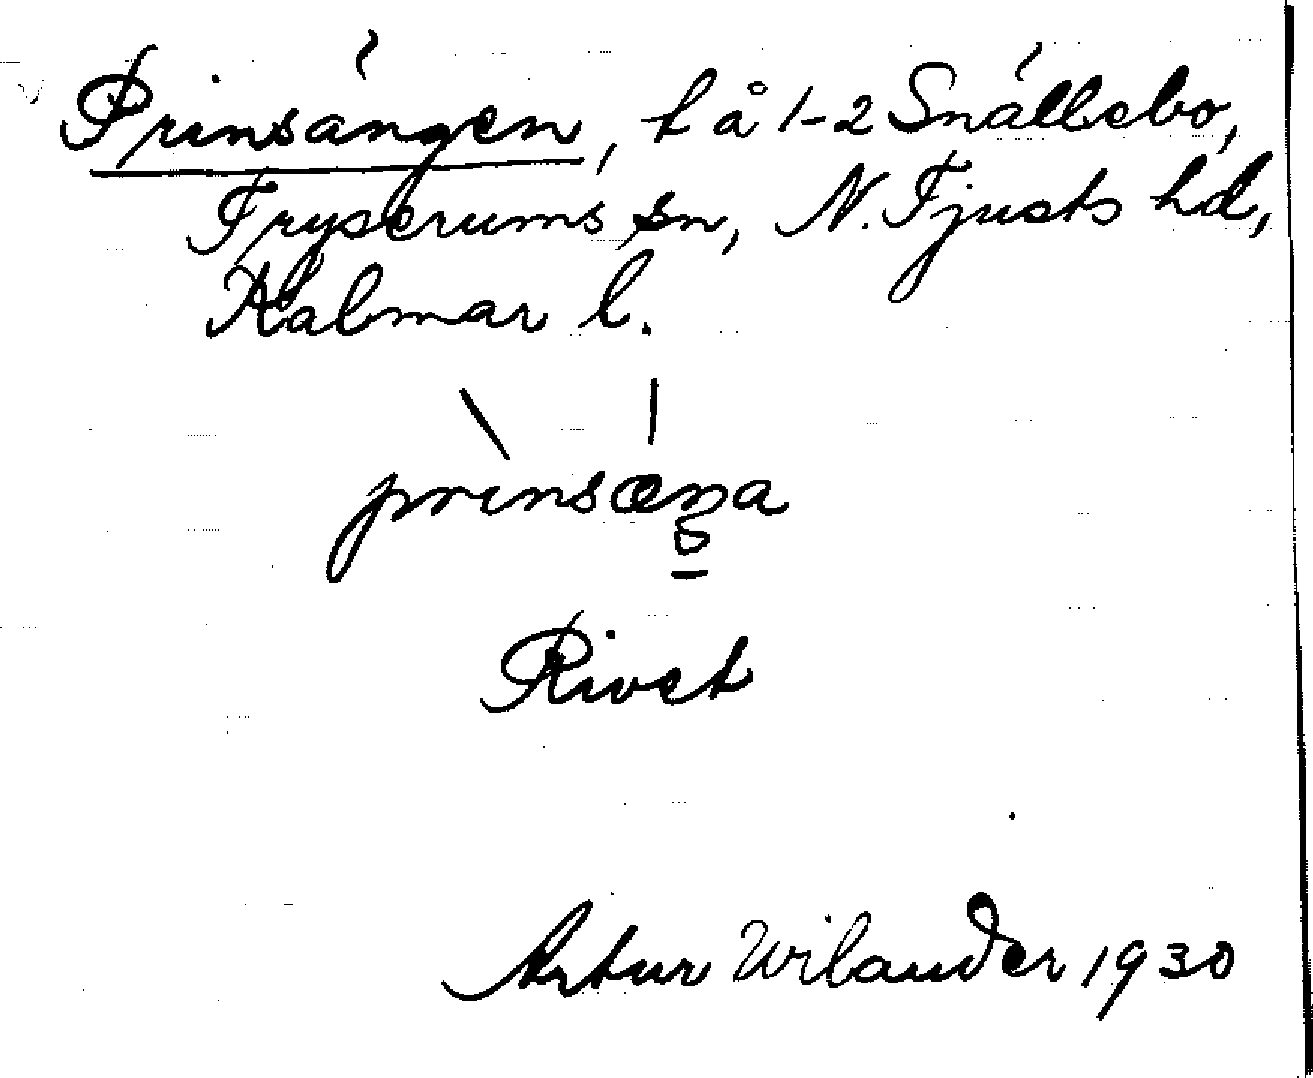 Prinsängen, t å 1-2 Snällebo,
Tryserums sn, N. Tjusts hd,
Kalmar l.
prinsæŋa
Rivet
Artur Wilander 1930